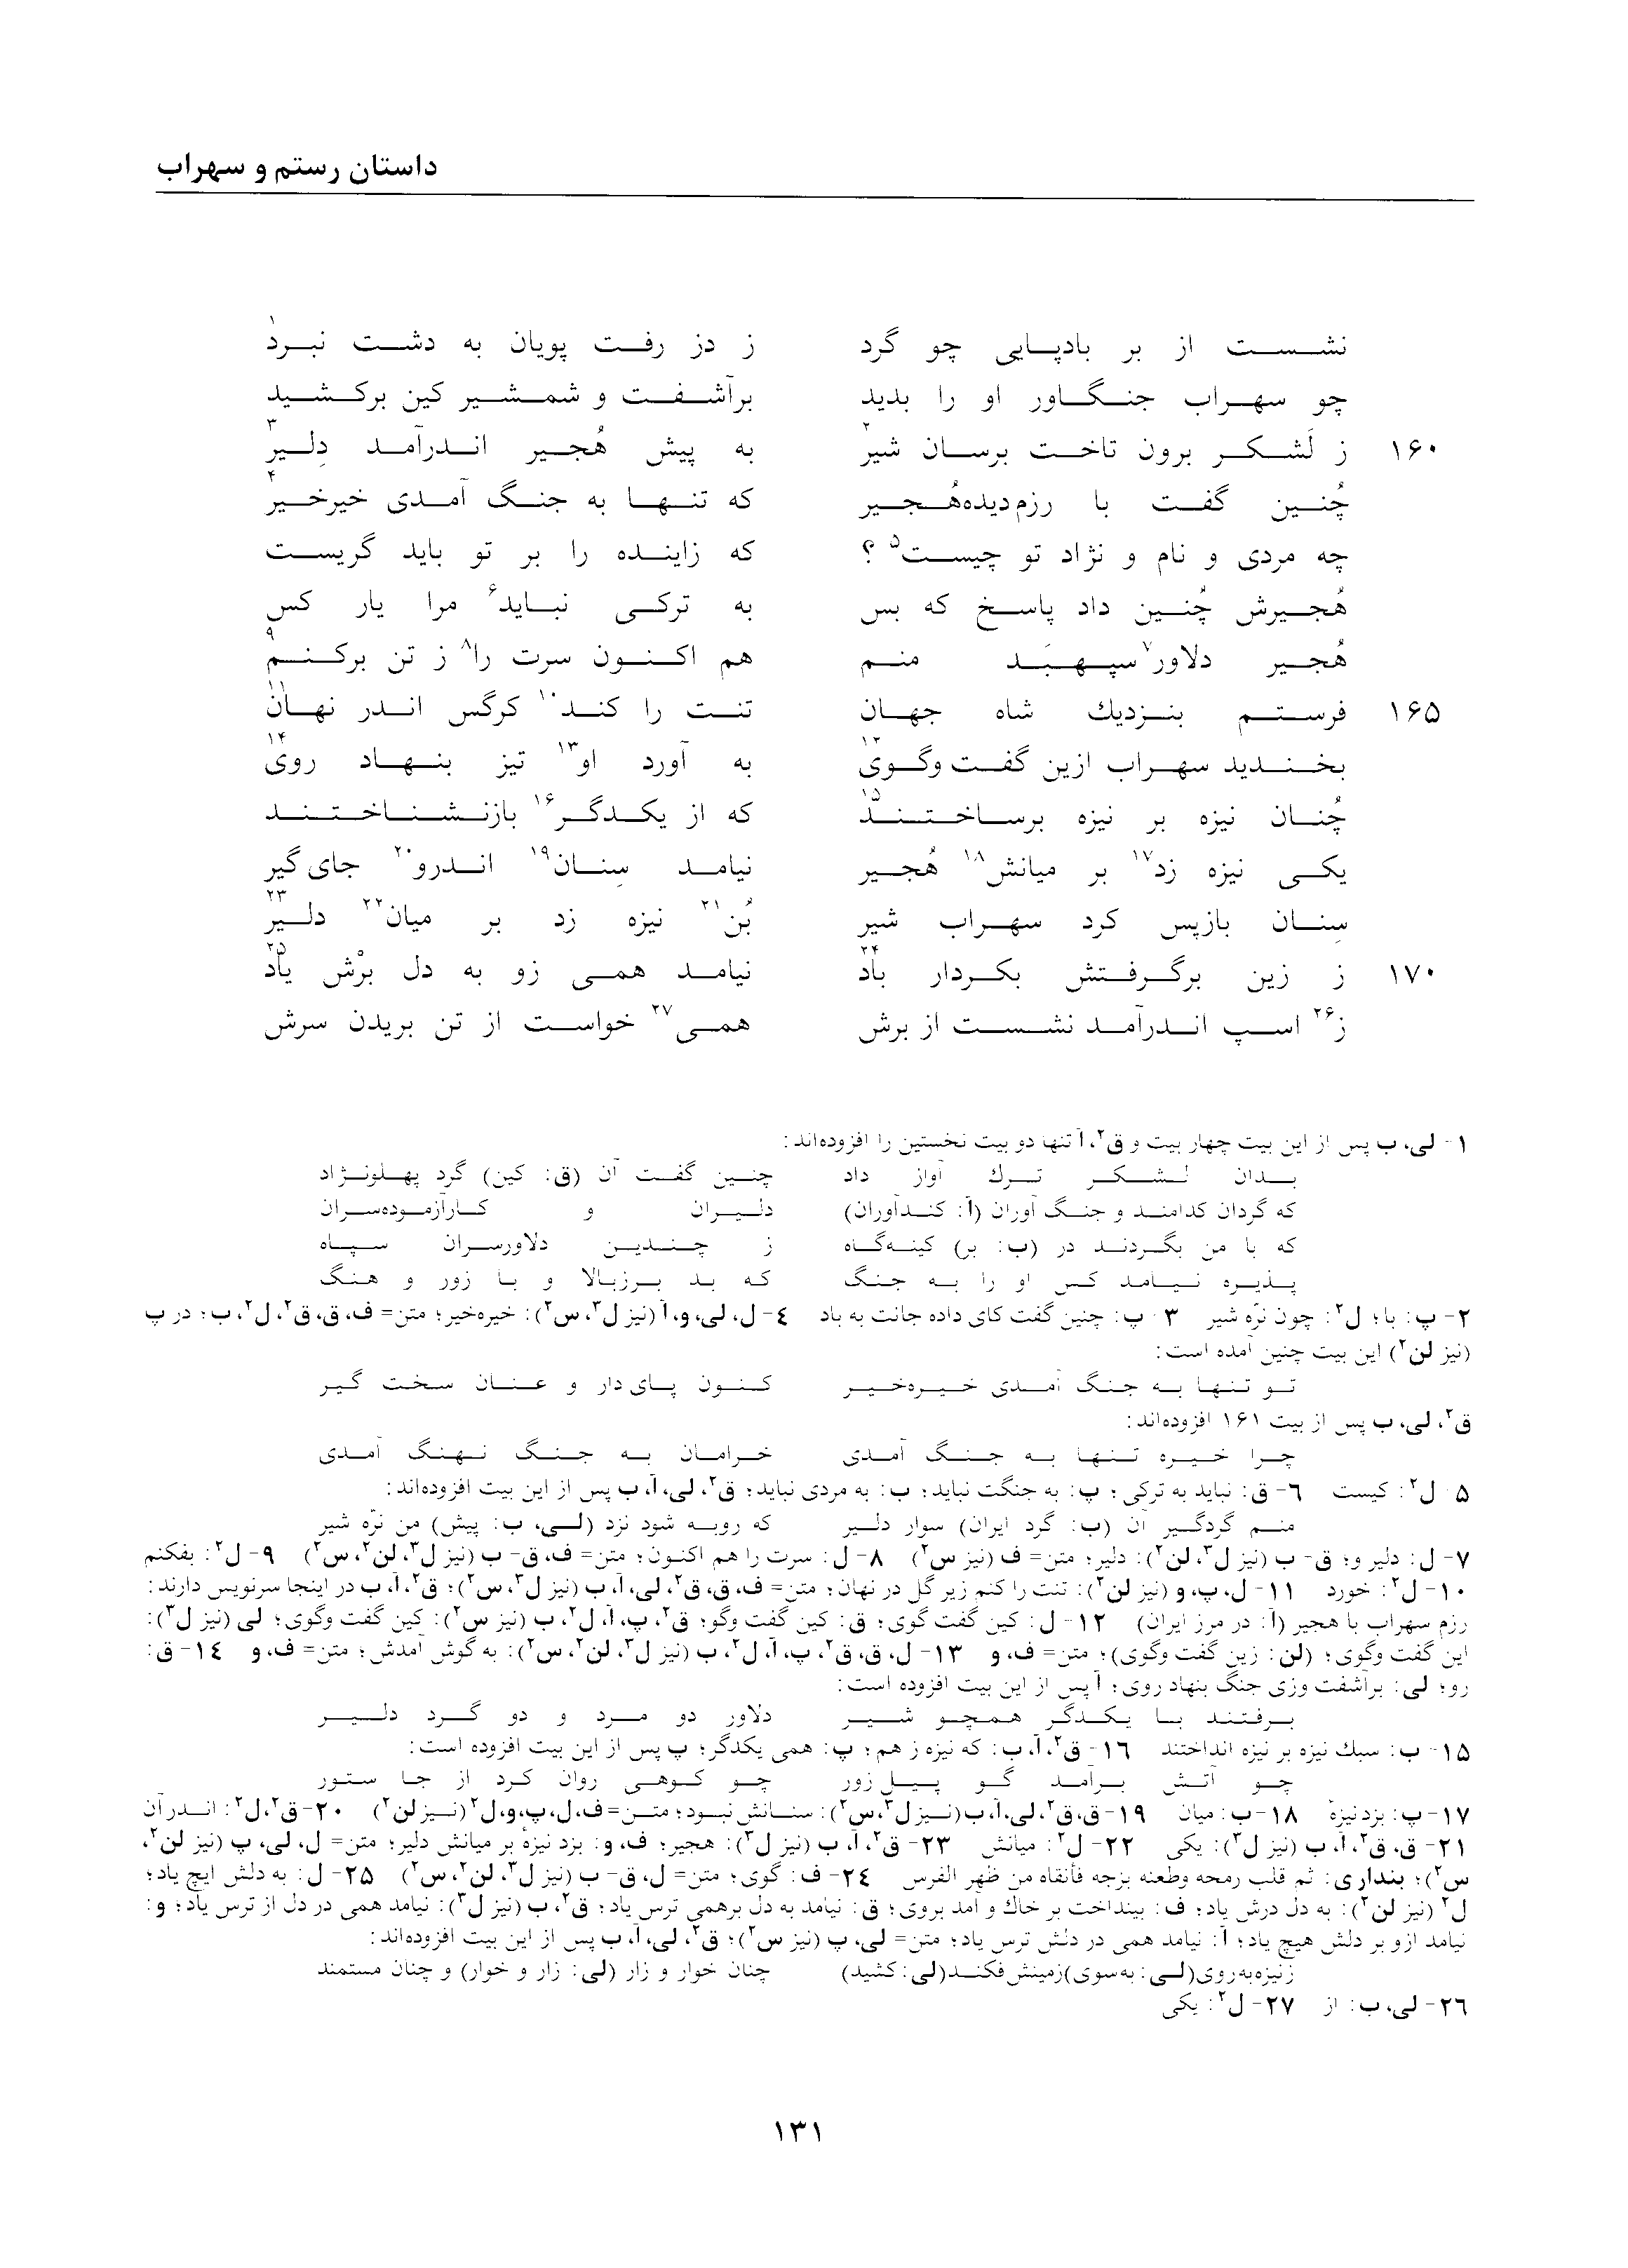 داستان رستم و سهراب
نشست از بر بادپایی چو گرد ز دز رفت پویان به دشت نبرد۱
چو سهراب جنگاور او را بدید برآشفت و شمشیر کین برکشید
۱۶۰ ز لشکر برون تاخت برسان شیر۲ به پیش هُجیر اندرآمد دِلیر۳
چُنین گفت با رزم‌دیده‌هُجیر که تنها به جنگ آمدی خیرخیر۴
چه مردی و نام و نژاد تو چیست۵ ؟ که زاینده را بر تو باید گریست
هُجیرش چُنین داد پاسخ که بس به ترکی نباید۶ مرا یار کس
هُجیر دلاور۷ سپهبَد منم هم اکنون سرت را۸ ز تن برکنم۹
۱۶۵ فرستم بنزدیك شاه جهان تنت را کند۱۰ کرگس اندر نهان۱۱
بخندید سهراب ازین گفت‌وگوی۱۲ به آورد او۱۳ تیز بنهاد روی۱۴
چُنان نیزه بر نیزه برساختند۱۵ که از یکدگر۱۶ بازنشناختند
یکی نیزه زد۱۷ بر میانش۱۸ هُجیر نیامد سِنان۱۹ اندرو۲۰ جای‌گیر
سِنان بازپس کرد سهراب شیر بُن۲۱ نیزه زد بر میان۲۲ دلیر۲۳
۱۷۰ ز زین برگرفتش بکردار باد۲۴ نیامد همی زو به دل بَرْش یاد۲۵
ز۲۶ اسپ اندرآمد نشست از برش همی۲۷ خواست از تن بریدن سرش
۱- لی، ب پس از این بیت چهار بیت و ق۲، آ تنها دو بیت نخستین را افزوده‌اند:
بدان لشکر ترك آواز داد چنین گفت آن (ق: کین) گرد پهلونژاد
که گردان کدامند و جنگ آوران (آ: کندآوران) دلیران و کارآزموده‌سران
که با من بگردند در (ب: بر) کینه‌گاه ز چندین دلاورسران سپاه
پذیره نیامد کس او را به جنگ که بد برزبالا و با زور و هنگ
۲- پ: با؛ ل۲: چون نرّه شیر ۳- پ: چنین گفت کای داده جانت به باد ۴- ل، لی، و، آ (نیز ل۳، س۲): خیره‌خیر؛ متن= ف، ق، ق۲، ل۲، ب؛ در پ
(نیز لن۲) این بیت چنین آمده است:
تو تنها به جنگ آمدی خیره‌خیر کنون پای‌دار و عنان سخت گیر
ق۲، لی، ب پس از بیت ۱۶۱ افزوده‌اند:
چرا خیره تنها به جنگ آمدی خرامان به جنگ نهنگ آمدی
۵- ل۲: کیست ۶- ق: نباید به ترکی؛ پ: به جنگت نباید؛ ب: به مردی نباید؛ ق۲، لی، آ، ب پس از این بیت افزوده‌اند:
منم گردگیر آن (ب: گرد ایران) سوار دلیر که روبه شود نزد (لی، ب: پیش) من نرّه شیر
۷- ل: دلیر و؛ ق- ب (نیز ل۳، لن۲): دلیر؛ متن= ف (نیز س۲) ۸- ل: سرت را هم اکنون؛ متن= ف، ق- ب (نیز ل۳، لن۲، س۲) ۹- ل۲: بفکنم
۱۰- ل۲: خورد ۱۱- ل، پ، و (نیز لن۲): تنت را کنم زیر گل در نهان؛ متن= ف، ق، ق۲، لی، آ، ب (نیز ل۳، س۲)؛ ق۲، آ، ب در اینجا سرنویس دارند:
رزم سهراب با هجیر (آ: در مرز ایران) ۱۲- ل: کین گفت گوی؛ ق: کین گفت وگو؛ ق۲، پ، آ، ل۲، ب (نیز س۲): کین گفت وگوی؛ لی (نیز ل۳):
این گفت وگوی؛ (لن: زین گفت وگوی)؛ متن= ف، و ۱۳- ل، ق، ق۲، پ، آ، ل۲، ب (نیز ل۳، لن۲، س۲): به گوش آمدش؛ متن= ف، و ۱۴- ق:
رو؛ لی: برآشفت وزی جنگ بنهاد روی؛ آ پس از این بیت افزوده است:
برفتند با یکدگر همچو شیر دلاور دو مرد و دو گرد دلیر
۱۵- ب: سبك نیزه بر نیزه انداختند ۱۶- ق۲، آ، ب: که نیزه ز هم؛ پ: همی یکدگر؛ پ پس از این بیت افزوده است:
چو آتش برآمد گو پیل‌زور چو کوهی روان کرد از جا ستور
۱۷- پ: بزدنیزهٔ ۱۸- ب: میان ۱۹- ق، ق۲، لی، آ، ب (نیز ل۳، س۲): سنانش نبود؛ متن= ف، ل، پ، و، ل۲ (نیز لن۲) ۲۰- ق۲، ل۲: اندرآن
۲۱- ق، ق۲، آ، ب (نیز ل۳): یکی ۲۲- ل۲: میانش ۲۳- ق۲، آ، ب (نیز ل۳): هجیر؛ ف، و: بزد نیزه بر میانش دلیر؛ متن= ل، لی، پ (نیز لن۲،
س۲)؛ بنداری: ثم قلب رمحه وطعنه بزجه فأنقاه من ظهر الفرس ۲۴- ف: گوی؛ متن= ل، ق- ب (نیز ل۳، لن۲، س۲) ۲۵- ل: به دلش ایچ یاد؛
ل۲ (نیز لن۲): به دل درش یاد؛ ف: بینداخت بر خاك و آمد بروی؛ ق: نیامد به دل برهمی ترس یاد؛ ق۲، ب (نیز ل۳): نیامد همی در دل از ترس یاد؛ و:
نیامد ازو بر دلش هیچ یاد؛ آ: نیامد همی در دلش ترس یاد؛ متن= لی، پ (نیز س۲)؛ ق۲، لی، آ، ب پس از این بیت افزوده‌اند:
زنیزه‌به‌روی (لی: به‌سوی) زمینش فکند (لی: کشید) چنان خوار و زار (لی: زار و خوار) و چنان مستمند
۲۶- لی، ب: از ۲۷- ل۲: یکی
۱۳۱